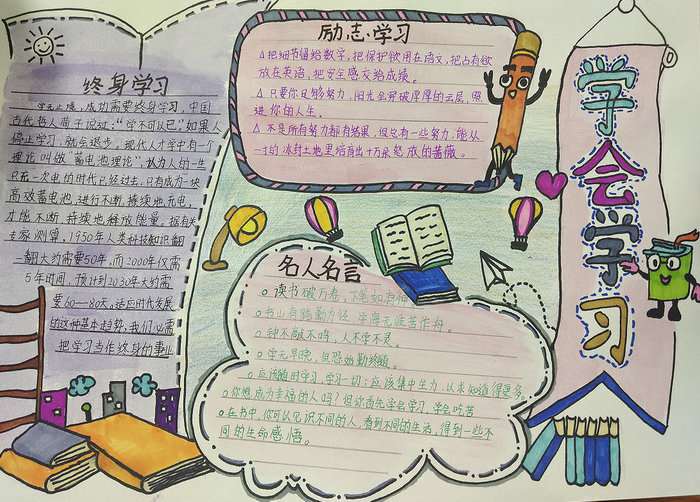 终身学习
学无止境,成功需要终身学习,中国
古代哲人荀子说过:"学不可以已"如果人
停止学习,就会退步。现代人才学中有一个
理论叫做"蓄电池理论",认为人的一生
只充一次电的时代已经过去,只有成为一块
高效蓄电池,进行不断、持续地充电,
才能不断、持续地释放能量。据有关
专家测算,1950年人类科技知识翻
一翻大约需要50年,而2000年仅需
5年时间。预计到2030年大约需
要60—80天。适应时代发展
的这种基本趋势,我们必需
把学习当作终身的事业
励志学习
△把细节留给数学,把保护欲用在语文,把占有欲
放在英语,把安全感交给成绩。
△只要你足够努力,阳光会穿破厚厚的云层,照
进你的人生。
△不是所有努力都有结果,但总有一些努力,能从
一寸的冰封土地里培育出十万朵怒放的蔷薇。
名人名言
读书破万卷,下笔如有神
书山有路勤为径,学海无涯苦作舟。
钟不敲不鸣,人不学不灵。
学无早晚,但恐始勤终随。
应该随时学习,学习一切;应该集中全力,以求知道得更多。
你想成为幸福的人吗?但你首先学会学习,学会吃苦
在书中,你可认识不同的人,看到不同的生活,得到一些不
同的生命感悟。
学会学习